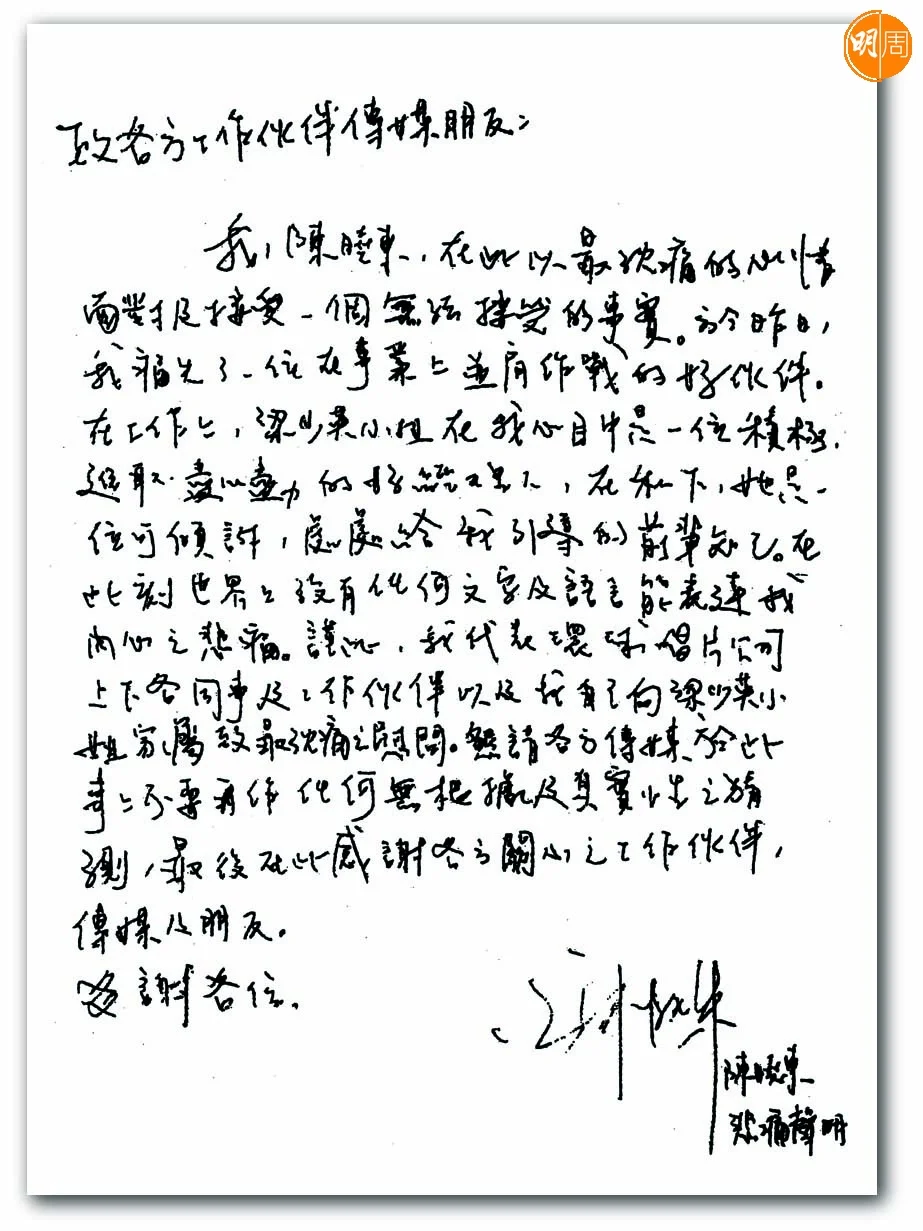 明周
致各方工作伙伴傳媒朋友:
我,陳曉東,在此以最沈痛的心情
面對及接受一個無法接受的事實。於今昨日,
我痛失了一位在事業上並肩作戰的好伙伴。
在工作上,梁少英小姐在我心目中是一位積極,
進取、盡心盡力的好經理人,在私下,她是一
位可傾訴,處處給我引導的前輩知己。在
此刻世界上沒有任何文字及語言能表達我
內心之悲痛。謹此,我代表環球唱片公司
上下各同事及工作伙伴以及我自己向梁少英小
姐家屬致最沈痛之慰問。懇請各方傳媒於此
事上不要再作任何無根據及真實性之猜
測,最後在此感謝各方關心之工作伙伴,
傳媒及朋友。
多謝各位。
陳曉東
悲痛聲明